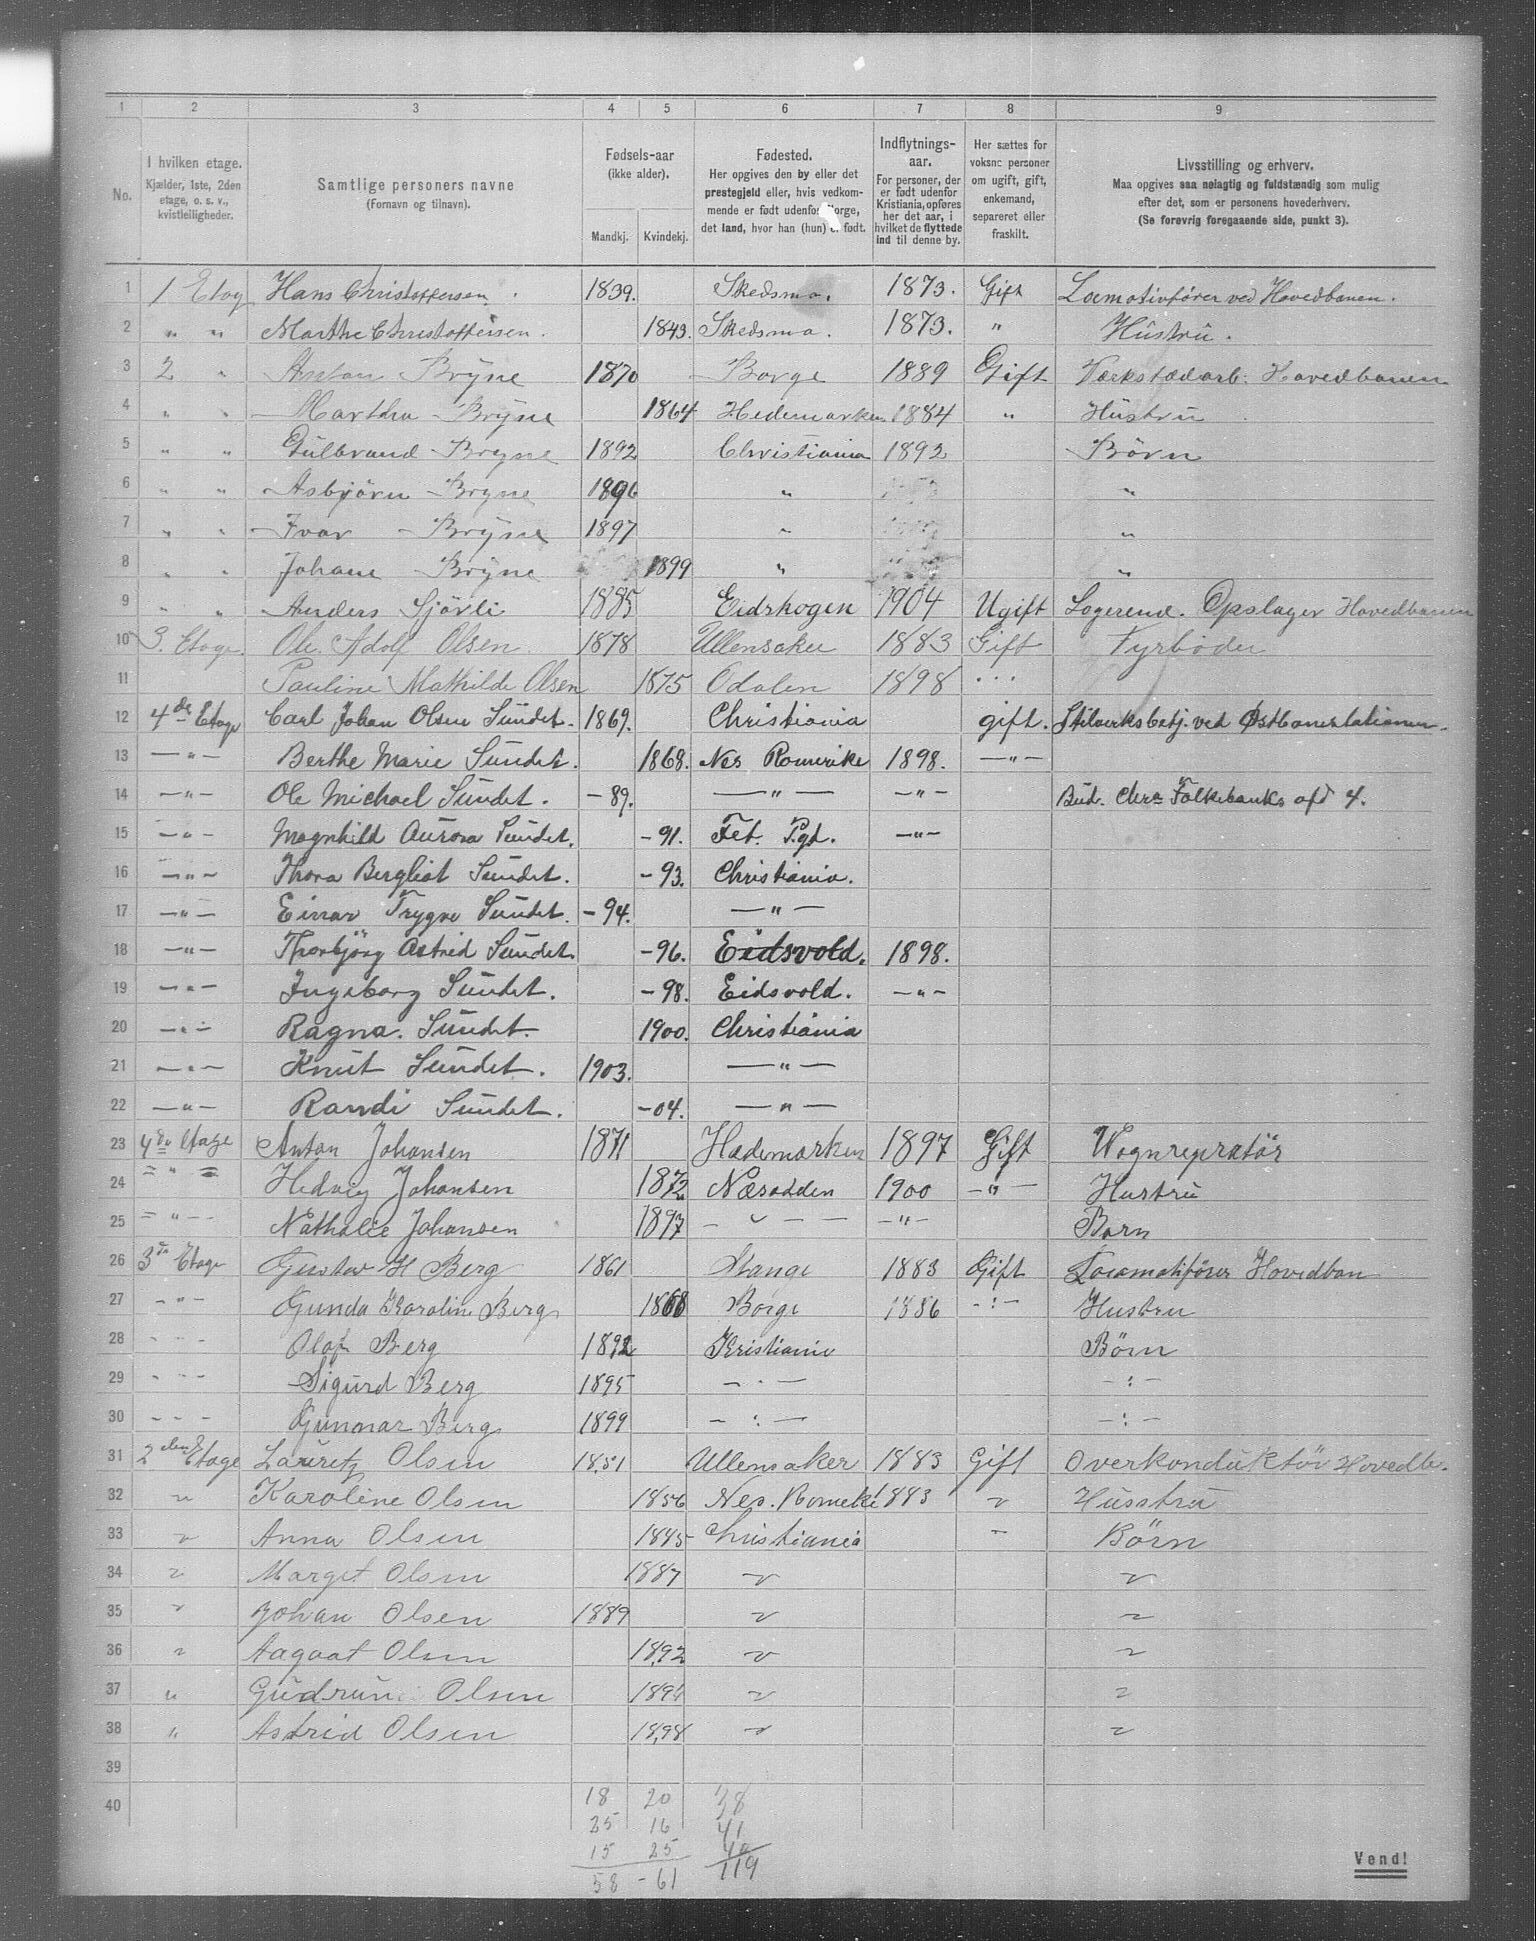 1 2 3 4 5 6 7 8 9
No.
I hvilken etage.
Kjælder, 1ste, 2den etage, o. s. v., kvistleiligheder.
Samtlige personers navne
(Fornavn og tilnavn).
Fødsels-aar
(ikke alder).
Mandkj. Kvindekj.
Fødested.
Her opgives den by eller det prestegjeld eller, hvis vedkommende er født udenfor Norge, det land, hvor han (hun) er født.
Indflytnings-aar.
For personer, der er født udenfor Kristiania, opføres her det aar, i hvilket de flyttede ind til denne by.
Her sættes for voksne personer om ugift, gift, enkemand, separeret eller fraskilt.
Livsstilling og erhverv.
Maa opgives saa nøiagtig og fuldstændig som mulig efter det, som er personens hovederhverv.
(Se forøvrig foregaaende side, punkt 3).
1 1 Etag Hans Christoffersen 1839. Skedsmo. 1873. Gift Locmotivfører ved Hovedbanen.
2 " " Marthe Christoffersen. 1843. Skedsmo. 1873. " Hustru.
3 2 " Anton Bryne 1870 Borge 1889 Gift Værkstædarb. Hovedbanen
4 " " Martha Bryne 1864 Hedemarken 1884 " Hustru
5 " " Gulbrand Bryne 1892 Christiania 1892 Børn
6 " " Asbjørn Bryne 1896 " "
7 " " Ivar Bryne 1897 " "
8 " " Johane Bryne 1899 " "
9 " " Anders Sjøvli 1885 Eidskogen 1904 Ugift Logerend. Opslager Hovedbanen
10 3. Etage. Ole Adolf Olsen 1878 Ullensaker 1883 Gift Fyrbøder
11 Pauline Mathilde Olsen 1875 Odalen 1898 . . .
12 4de Etage Carl Johan Olsen Sundet. 1869. Christiania gift. Stilverksbetj. ved Østbanestationen.
13 —"— Berthe Marie Sundet. 1868. Nes Romerike 1898. —"—
14 —"— Ole Michael Sundet. —89. —"— —"— Bud. Chra Folkebanks afd 4.
15 —"— Magnhild Aurora Sundet. —91. Fet. Pgd. —"—
16 —"— Thora Bergliot Sundet. —93. Christiania.
17 —"— Einar Trygve Sundet. —94. —"—
18 —"— Thorbjörg Astrid Sundet. —96. Eidsvold. 1898.
19 —"— Ingeborg Sundet. —98. Eidsvold. —"—
20 —"— Ragna. Sundet. 1900. Christiania
21 —"— Knut Sundet. 1903. —"—
22 —"— Randi Sundet. —04. —"—
23 4de Etage Anton Johansen 1871 Hedemarken 1897 Gift Wognrepratør
24 " Hedvig Johansen 1872 Næsodden 1900 —"— Hustru
25 " Nathalie Johansen 1897 —"— —"— Barn
26 3de Etage Gustav H Berg 1861 Stange 1883 Gift Locamotifører Hovedban
27 —"— Gunda Karoline Berg 1868 Borge 1886 —:— Hustru
28 - - - Olaf Berg 1892 Kristiania Børn
29 - - - Sigurd Berg 1895 — · — —:—
30 - - - Gunnar Berg 1899 —:— —:—
31 2den Etage Lauritz Olsen 1851 Ullensaker 1883 Gift Overkonduktør Hovedb.
32 " Karoline Olsen 1856 Nes. Romeke 1883 " Husstru
33 " Anna Olsen 1885 Christiania " Børn
34 " Marget Olsen 1887 " "
35 " Johan Olsen 1889 " "
36 " Aagaat Olsen 1892 " "
37 " Gudrun Olsen 1894 " "
38 " Astrid Olsen 1898 " "
39
40
18 20 38
25 16 41
15 25 40
58 - 61 119
Vend!